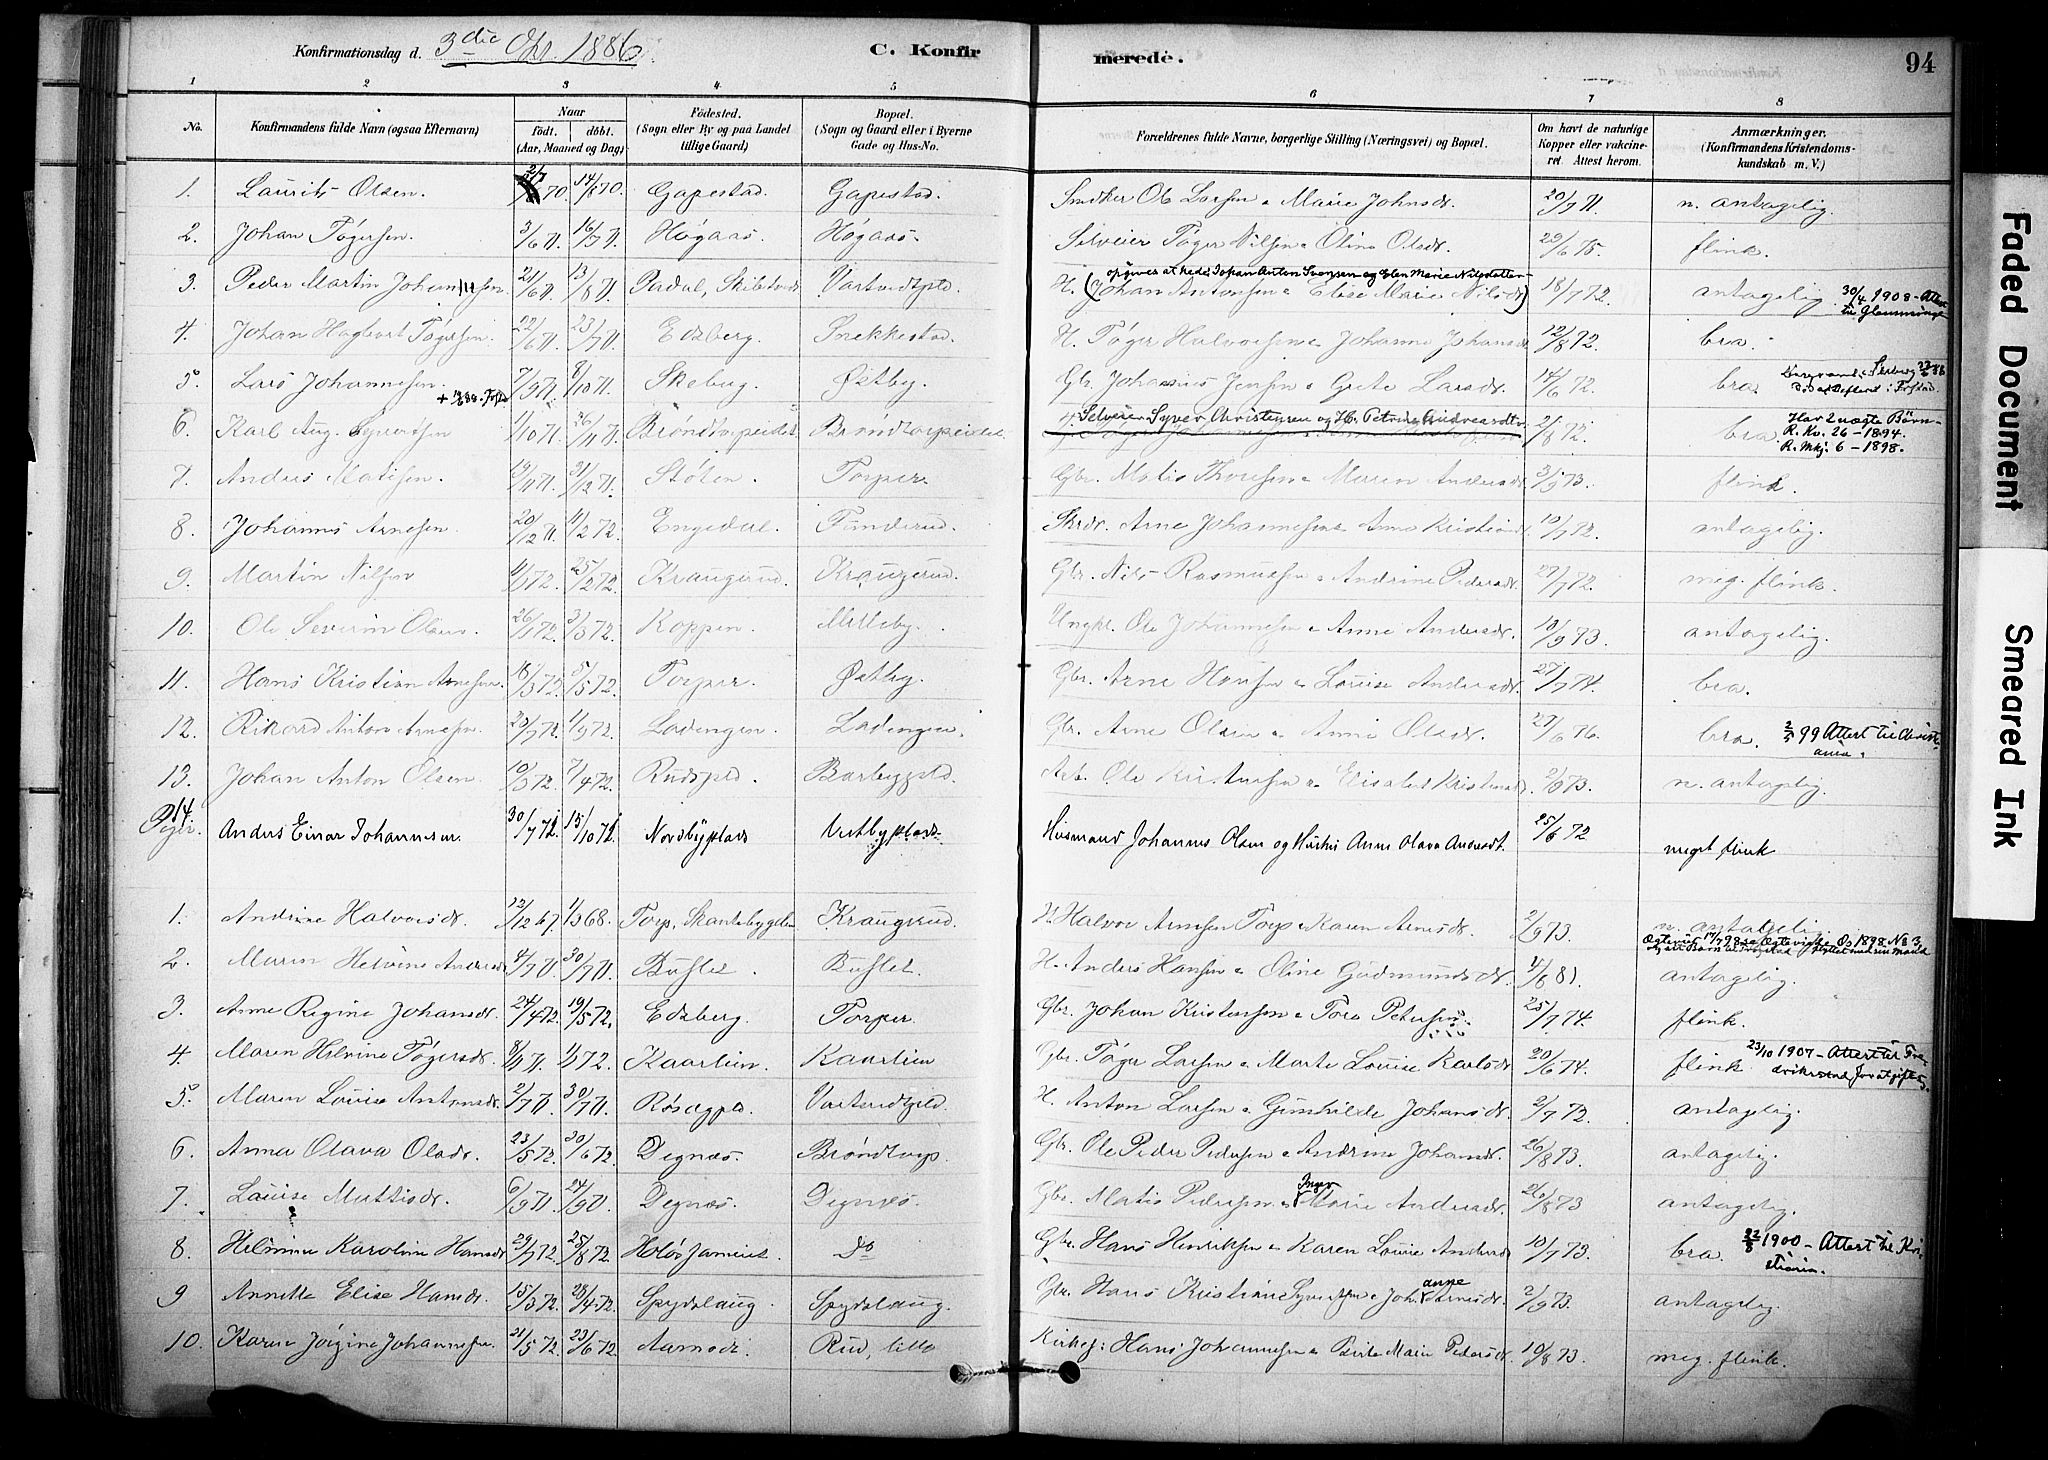 Konfirmationsdag d. 3die Okt. 1886. C. Konfirmerede. 94
1 2 3 4 5 6 7 8
No. Konfirmandens fulde Navn (ogsaa Efternavn) Naar født. døbt. (Aar, Maaned og Dag) Fødested. (Sogn eller By og paa Landet tillige Gaard) Bopæl. (Sogn og Gaard eller i Byerne Gade og Hus-No. Forældrenes fulde Navne, borgerlige Stilling (Næringsvei) og Bopæl. Om havt de naturlige Kopper eller vakcineret. Attest herom. Anmærkninger. (Konfirmandens Kristendomskundskab m. V.)
1. Laurits Olsen. 70. 14/8 70. Gapestad. Gapestad. Ole Larsen & Marie Johnsdr. 20/9 71. n. antagelig.
2. Johan Tøgersen. 3/6 71. 16/7 71. Høgaas. Høgaas. Selveier Tøger Nilsen & Oline Olsdr. 29/6 75. flink.
opgives at hede: Johan Anton Svensen og Elen Marie Nilsdatter
3. Peder Martin Johansen. 21/6 71. 13/8 71. H. (Johan Antonsen & Elise Marie Nilsdr) 18/7 72. antagelig. 30/4 1908 - Attest til Glemminge
4. Johan Hagbart Tøgersen. 22/6 71. 23/7 71. Edsberg. Snekkestad. H. Tøger Halvorsen & Johanne Johansdr. 12/8 72. bra.
5. Lars Johannesen. 7/9 71. 8/10 71. Skebug. Østby. Gbr. Johannes Jensen & Grete Larsdr. 14/6 72. bra.
6. Karl Aug. Syversen 1/10 71. 26/11 71. Selveier Syver Christensen og H. Petrine Andreasdtr. 21/8 72. bra. Har 2 uægte Børn
R. Kv. 26 - 1894.
R. Mkj. 6 - 1898.
7. Anders Matisen. 19/11 71. 31/12 71. Stølen. Torper. Gbr. Matis Thoresen & Maren Andersdr. 3/9 73. flink.
8. Johannes Arnesen. 20/12 71. 4/2 72. Engedal. Tunderud. Arne Johannesen & Anne Kristiansdr. 10/7 72. antagelig.
9. Martin Nilsen 4/1 72. 25/2 72. Kraugerud. Kraugerud. Gbr. Nils Rasmussen & Andrine Pedersdr. 27/7 72. meg. flink.
10. Ole Severin Olsen. 26/1 72. 3/3 72. Koppen. Milleby. Ungkl. Ole Johannesen & Anne Andersdr. 10/9 73. antagelig.
11. Hans Kristian Arnesen. 18/3 72. 5/5 72. Torper. Østby. Gbr. Arne Hansen & Louise Andersdr. 27/7 74. bra.
12. Rikard Anton Arnesen. 20/7 72. 1/9 72. Ladengen. Ladengen. Gbr. Arne Olsen & Anne Olsdr. 27/6 76. bra. 2/5 99 Attest til Christiania.
13. Johan Anton Olsen 10/3 72. 7/4 72. Rudspld. Barbypld. Arb. Ole Kristensen & Elisabet Kristensdr. 2/9 73. n. antagelig.
14. Anders Einar Johannesen 30/7 72. 15/10 72. Nordbyplads Vestbyplads. Husmand Johannes Olsen og Hustru Anne Olava Andersdt. 25/6 72 meget flink
Piger.
1. Andrine Halvorsdr. 22/12 67. 1/3 68. Torp, Skantebygden Kraugerud. H. Halvor Arnesen Torp & Karen Arnesdr. 2/9 73. n. antagelig.
2. Maren Helvine Andersdr 4/7 71. 30/7 71. Buslet. Buslet. H. Anders Hansen & Oline Gudmundsdr. 4/6 81. antagelig.
3. Anne Regine Johansdr. 24/4 72. 19/5 72. Edsberg. Torper. Gbr. Johan Kristensen & Tora Petersen. 25/7 74. flink.
4. Maren Helvine Tøgersdr. 8/11 71. 1/1 72. Kaarlien. Kaarlien Gbr. Tøger Larsen & Marte Louise Karlsdr. 20/6 74. flink. 23/10 1907 - Attest til Fredrikstad for at giftes.
5. Maren Louise Antonsdr. 2/7 71. 30/7 71. Røsægpld. H. Anton Larsen & Gunhilde Johansdr. 2/7 72. antagelig.
6. Anna Olava Olsdr. 23/5 72. 30/6 72. Degnæs. Brøndtorp. Gbr. Ole Peder Pedersen & Andrine Johansdr. 26/8 73. antagelig.
7. Louise Mattisdr. 6/9 71. 24/9 71. Degnæs. Degnæs. Gbr. Matis Pedersen & Inger Marie Andersdr. 26/8 73 antagelig.
8. Helmine Karoline Hansdr 29/7 72. 25/8 72. Do Gbr. Hans Henriksen & Karen Louise Andersdr 10/7 73. bra. 22/8 1900 - Attest til Kristiania.
9 Annette Elise Hansdr. 15/3 72. 28/4 72. Spydslaug. Spydslaug. Gbr. Hans Kristian Syversen & Johanne Arnesdr. 2/9 73. antagelig.
10. Karen Jørgine Johannesen. 21/5 72. 23/6 72. Aamodt. Rud, lille Kirkes: Hans Johannesen & Berte Marie Pedersdr. 19/8 73. meg. flink.
Faded Document
Smeared Ink